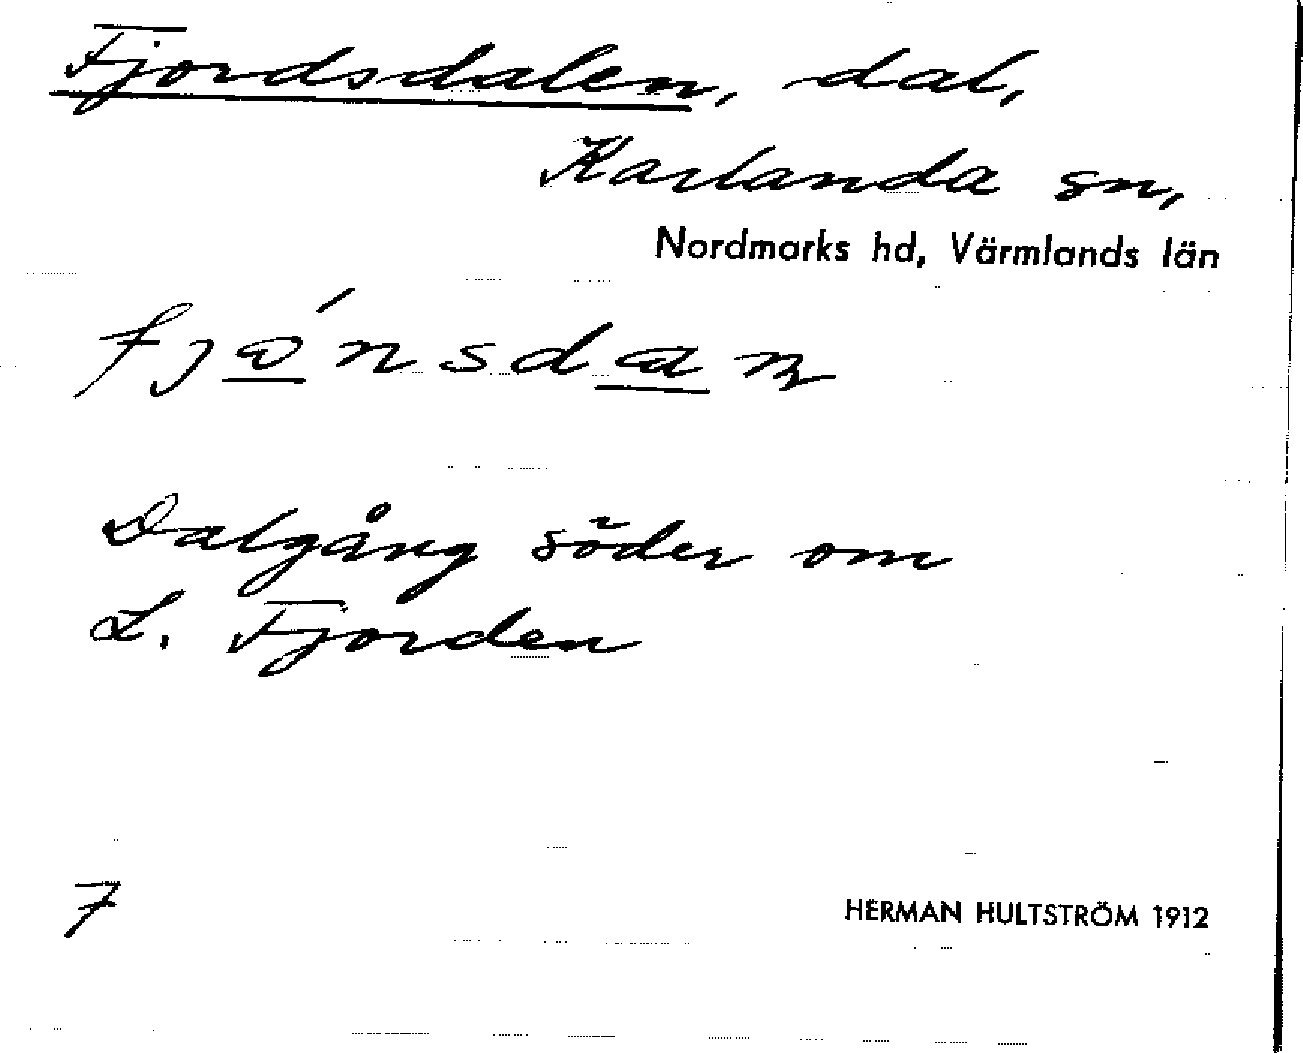 Fjordsdalen, dal,
Karlanda sn,
Nordmarks hd, Värmlands län
Dalgång söder om
L. Fjorden
7
HERMAN HULTSTRÖM 1912